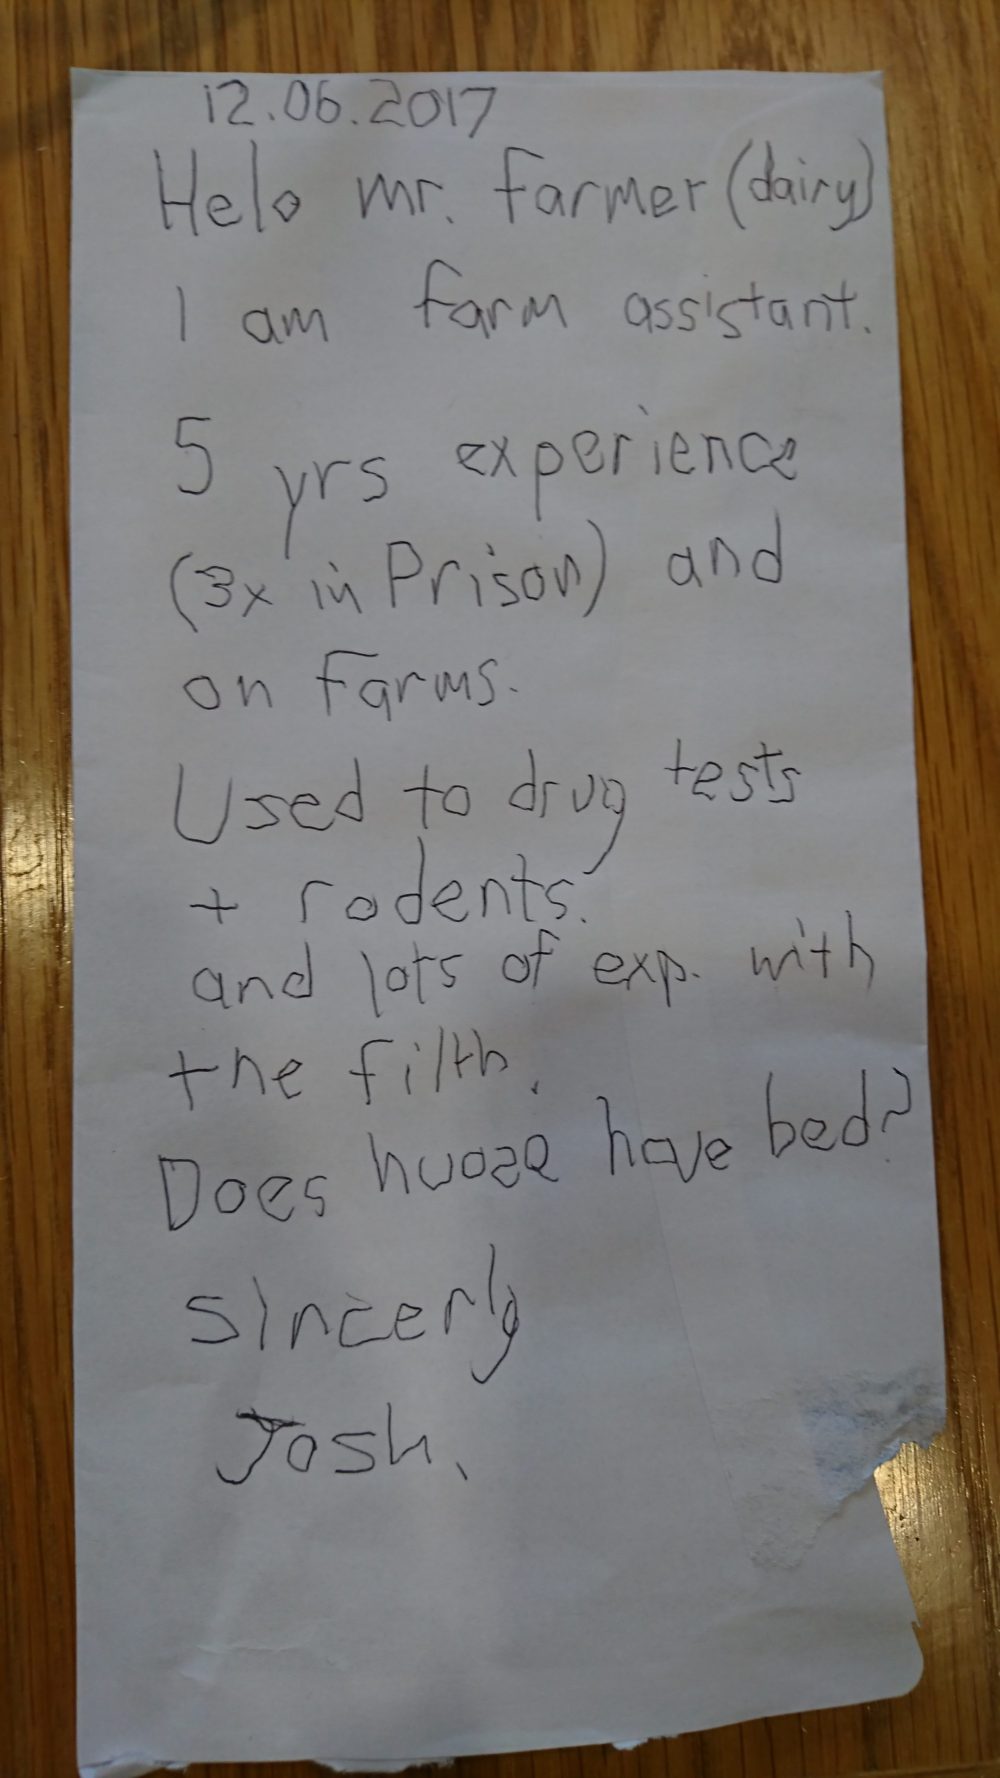 12.06.2017
Helo mr. Farmer (dairy)
I am farm assistant.
5 yrs experience
(3x in Prison) and
on Farms.
Used to drug tests
+ rodents.
and lots of exp. with
the filth.
Does huose have bed?
Sincerly
Josh.